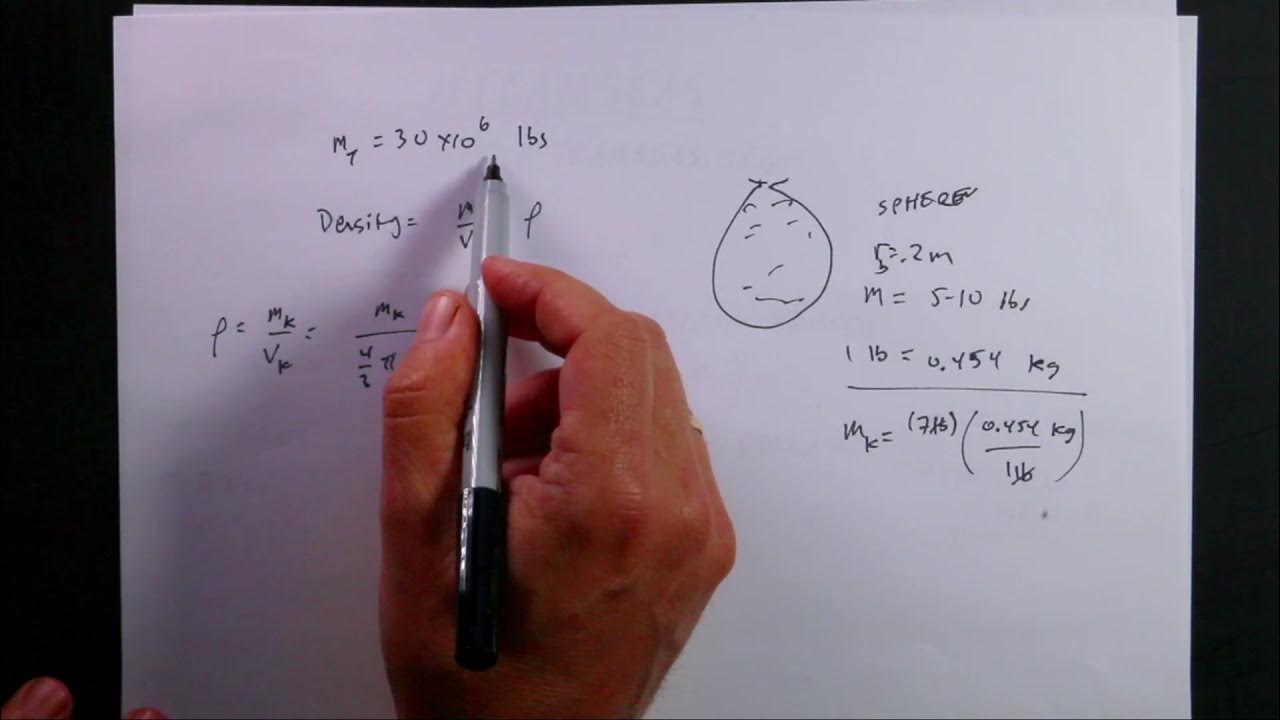 m_T = 30 ×10^6 lbs
Density = m/V ρ
ρ = m_K/V_K = m_K/4/3 π
SPHERE
r_b = .2 m
m = 5-10 lbs
1 lb = 0.454 kg
m_K = (7 lb) (0.454 kg/1 lb)